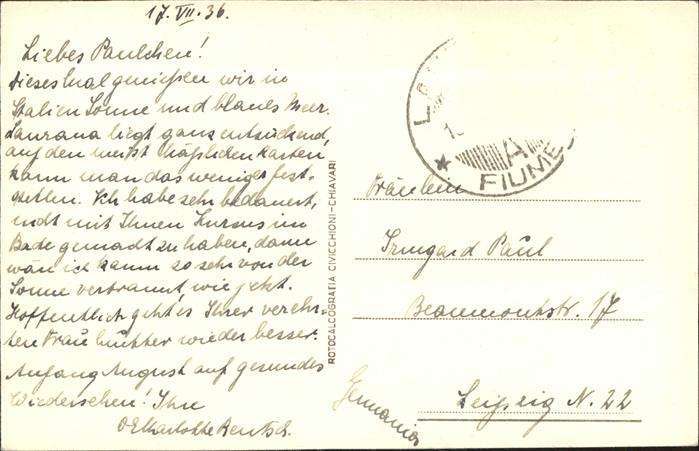 17.VII.36.
Liebes Paulchen!
Dieses Mal genießen wir in
Italien Sonne und blaues Meer.
Laurana liegt ganz entzückend,
auf den meist häßlichen Karten
kann man das weniger fest-
stellen. Ich habe sehr bedauert,
nicht mit Ihnen Kursus im
Bade gemacht zu haben, dann
wär ich kaum so sehr von der
Sonne verbrannt, wie jetzt.
Hoffentlich geht es Ihrer verehr-
ten Frau Mutter wieder besser.
Anfang August auf gesundes
Wiedersehen! Ihre
Charlotte
ROTOCALCOGRAFIA CIVICCHIONI-CHIAVARI
FIUME
Fräulein
Irmgard Paul
Beaumontstr. 17
Leipzig N. 22
Germania